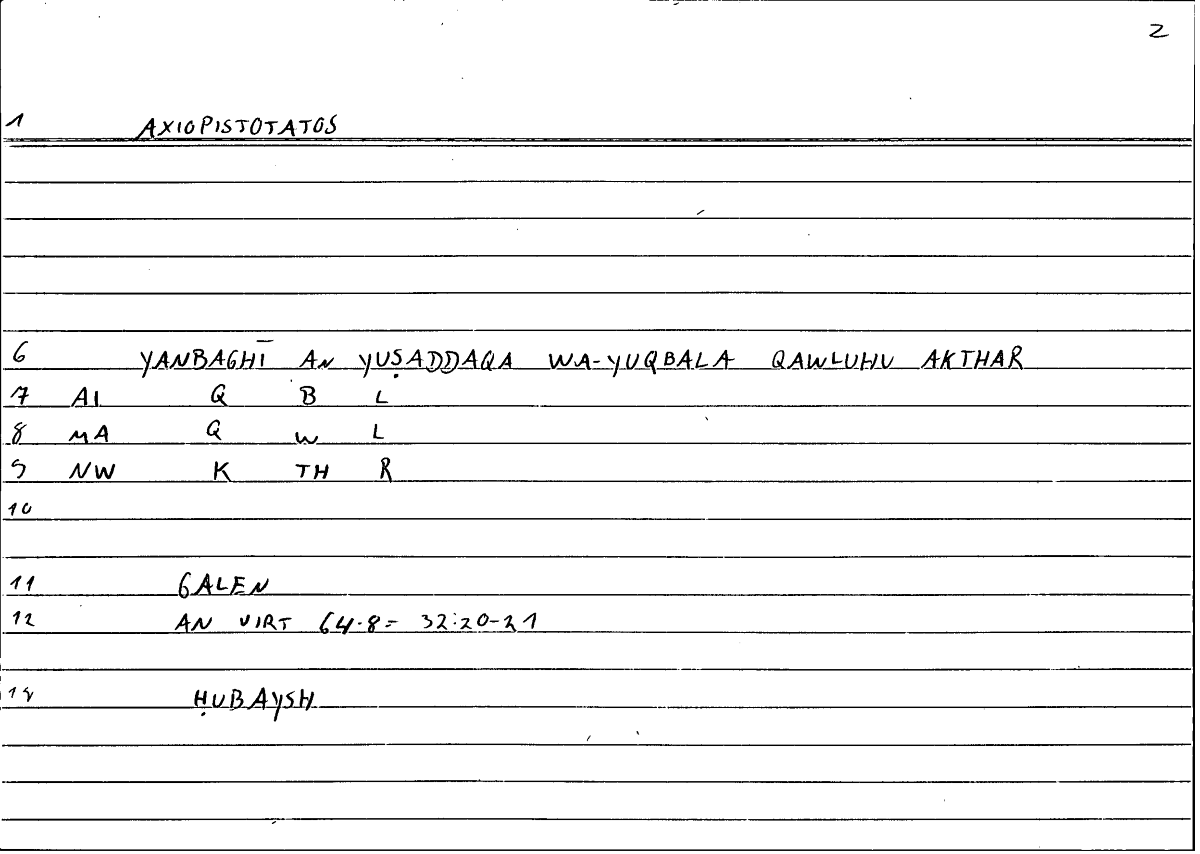 2
1 AXIOPISTOTATOS
6 YANBAGHĪ AN YUṢADDAQA WA-YUQBALA QAWLUHU AKTHAR
7 AI Q B L
8 MA Q W L
9 NW K TH R
10
11 GALEN
12 AN VIRT 64.8= 32:20-21
14 ḤUBAYSH